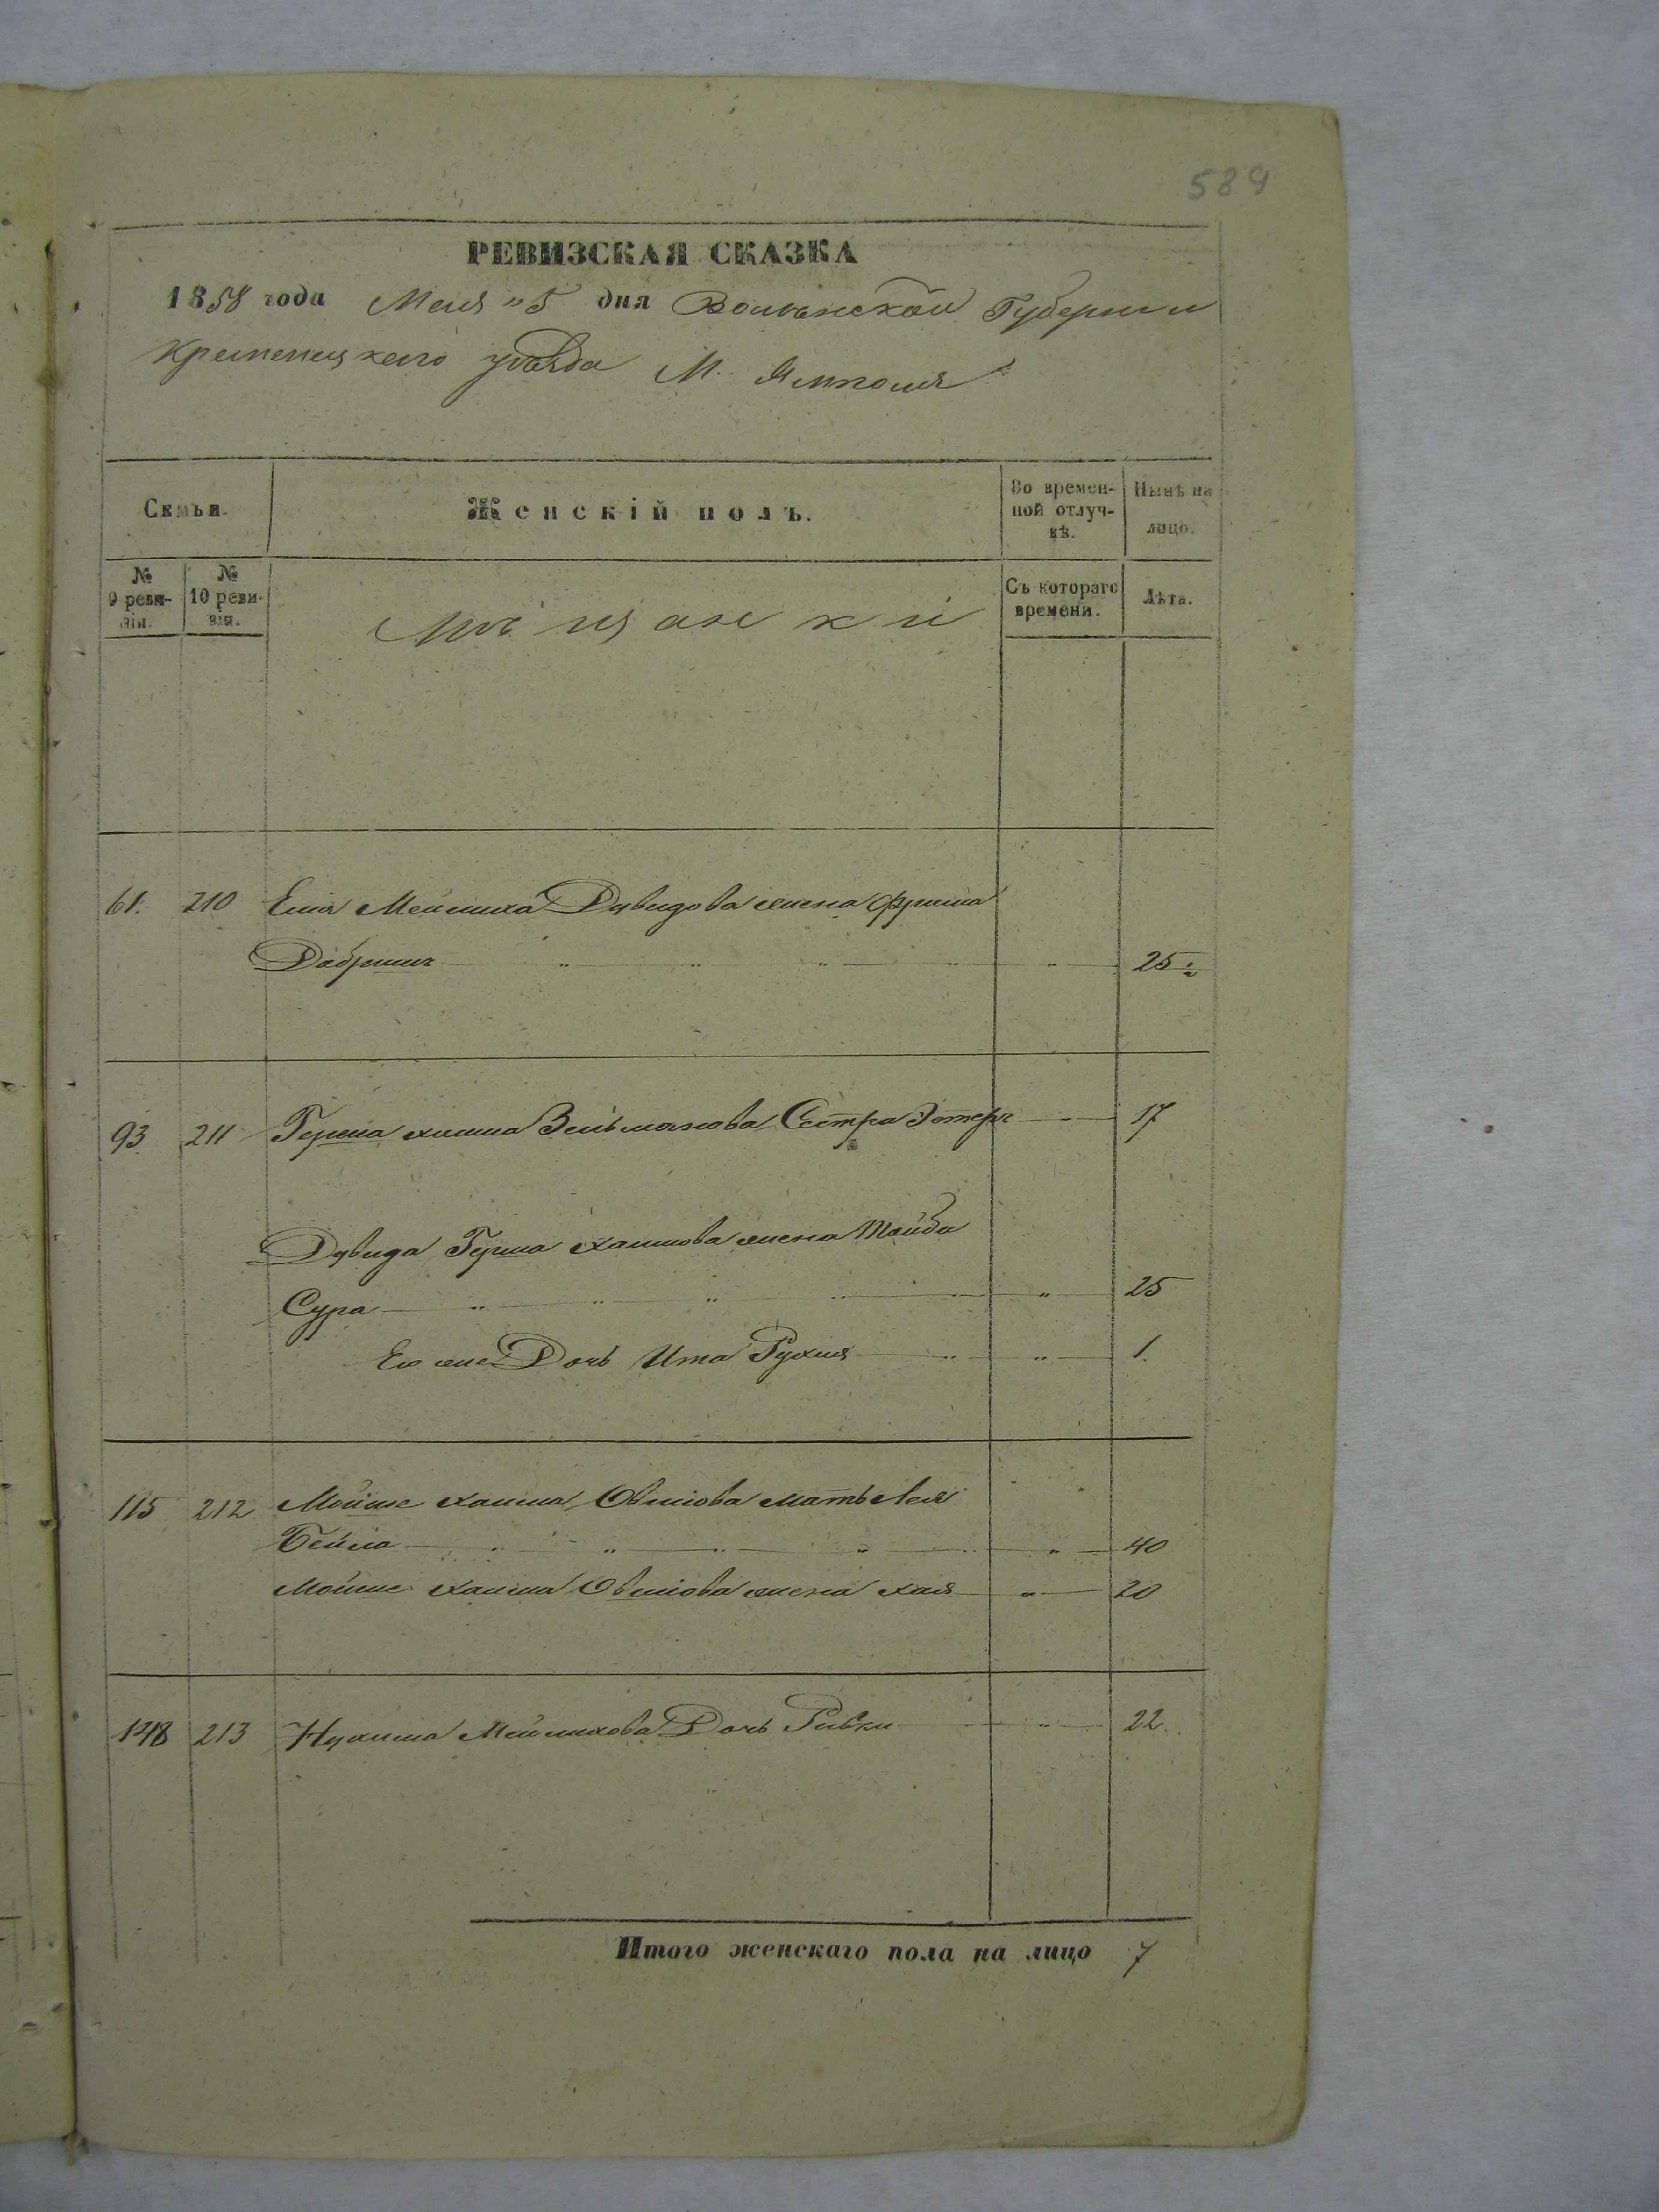 589
РЕВИЗСКАЯ СКАЗКА
1858 года Мая "5 дня Волынской Губернии
Кременецкаго уѣзда М. Ямполя
Семьи. Женскій полъ. Во времен-ной отлуч-кѣ. Нынѣ на лицо.
№ 9 реви-зіи. № 10 реви-зіи. Мѣщанки Съ котораго времени. Лѣта.
61. 210 Давидова жена Фрима
25
93 211 Герша Хаима Зельманова Сестра Эстеръ 17
Давида Герша Хаимова жена Тойба
Сура 25
Его же Дочь Ита Рухля 1.
115 212 Мойше Хаима Овшіова мать Лея
Бейла 40
Мойше Хаима Овшіова жена Хая 20
148 213 Нухима Мейлихова Дочь Ривки 22.
Итого женскаго пола на лицо 7